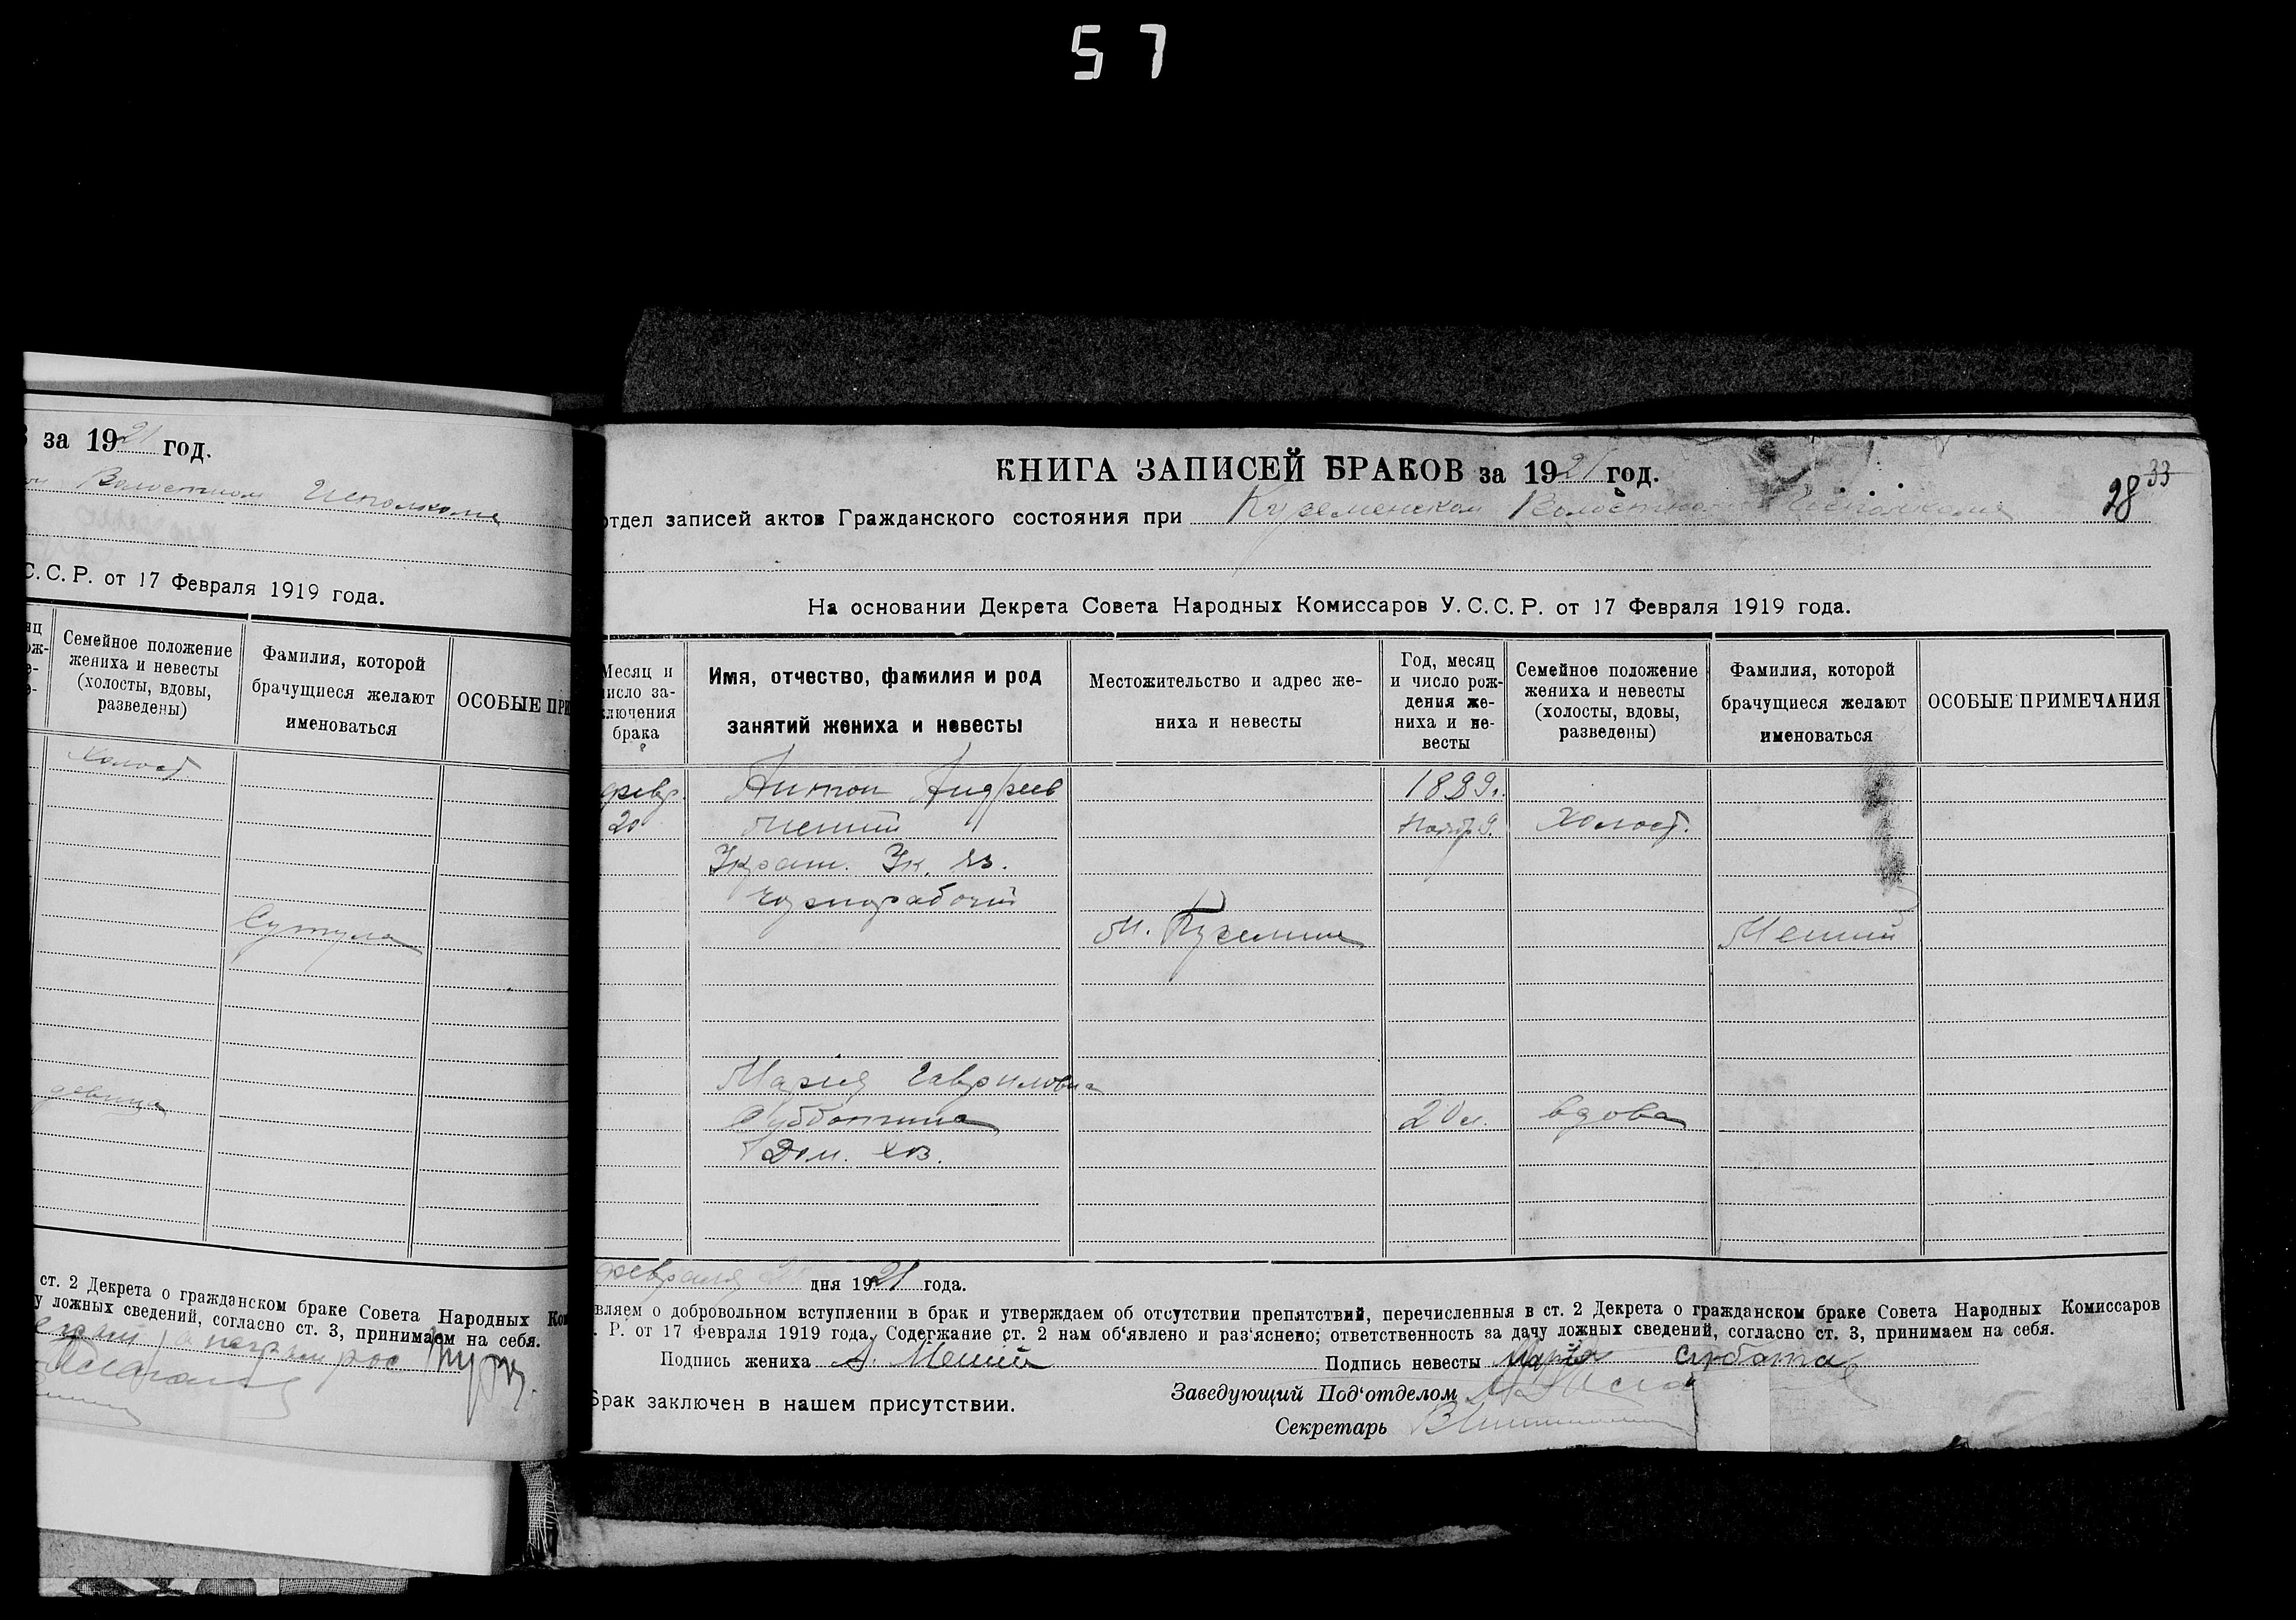 57
за 1921 год.
Волостном Исполкоме
С.С.Р. от 17 Февраля 1919 года.
Семейное положение
жениха и невесты
(холосты, вдовы,
разведены)
Фамилия, которой
брачущиеся желают
именоваться
ОСОБЫЕ ПРИ
Холост
Сутула
девица
ст. 2 Декрета о гражданском браке Совета Народных Ком
у ложных сведений, согласно ст. 3, принимаем на себя.
КНИГА ЗАПИСЕЙ БРАКОВ за 1921 год.
33
28
отдел записей актов Гражданского состояния при Куземенском Волостном Исполкоме
На основании Декрета Совета Народных Комиссаров У.С.С.Р. от 17 Февраля 1919 года.
Месяц и
число за-
ключения
брака
Имя, отчество, фамилия и род
занятий жениха и невесты
Местожительство и адрес же-
ниха и невесты
Год, месяц
и число рож-
дения же-
ниха и не-
весты
Семейное положение
жениха и невесты
(холосты, вдовы,
разведены)
Фамилия, которой
брачущиеся желают
именоваться
ОСОБЫЕ ПРИМЕЧАНИЯ
февр. Антон Андреев 1899.
20 Холост.
Чернорабочий
Мария Гавриловна
Субботина 20 л. вдова
Дом. хоз.
февраля дня 1921 года.
вляем о добровольном вступлении в брак и утверждаем об отсутствии препятствий, перечисленныя в ст. 2 Декрета о гражданском браке Совета Народных Комиссаров
. Р. от 17 Февраля 1919 года. Содержание ст. 2 нам об'явлено и раз'яснено; ответственность за дачу ложных сведений, согласно ст. 3, принимаем на себя.
Подпись жениха А. Подпись невесты Мария
Заведующий Под'отделом
Брак заключен в нашем присутствии.
Секретарь